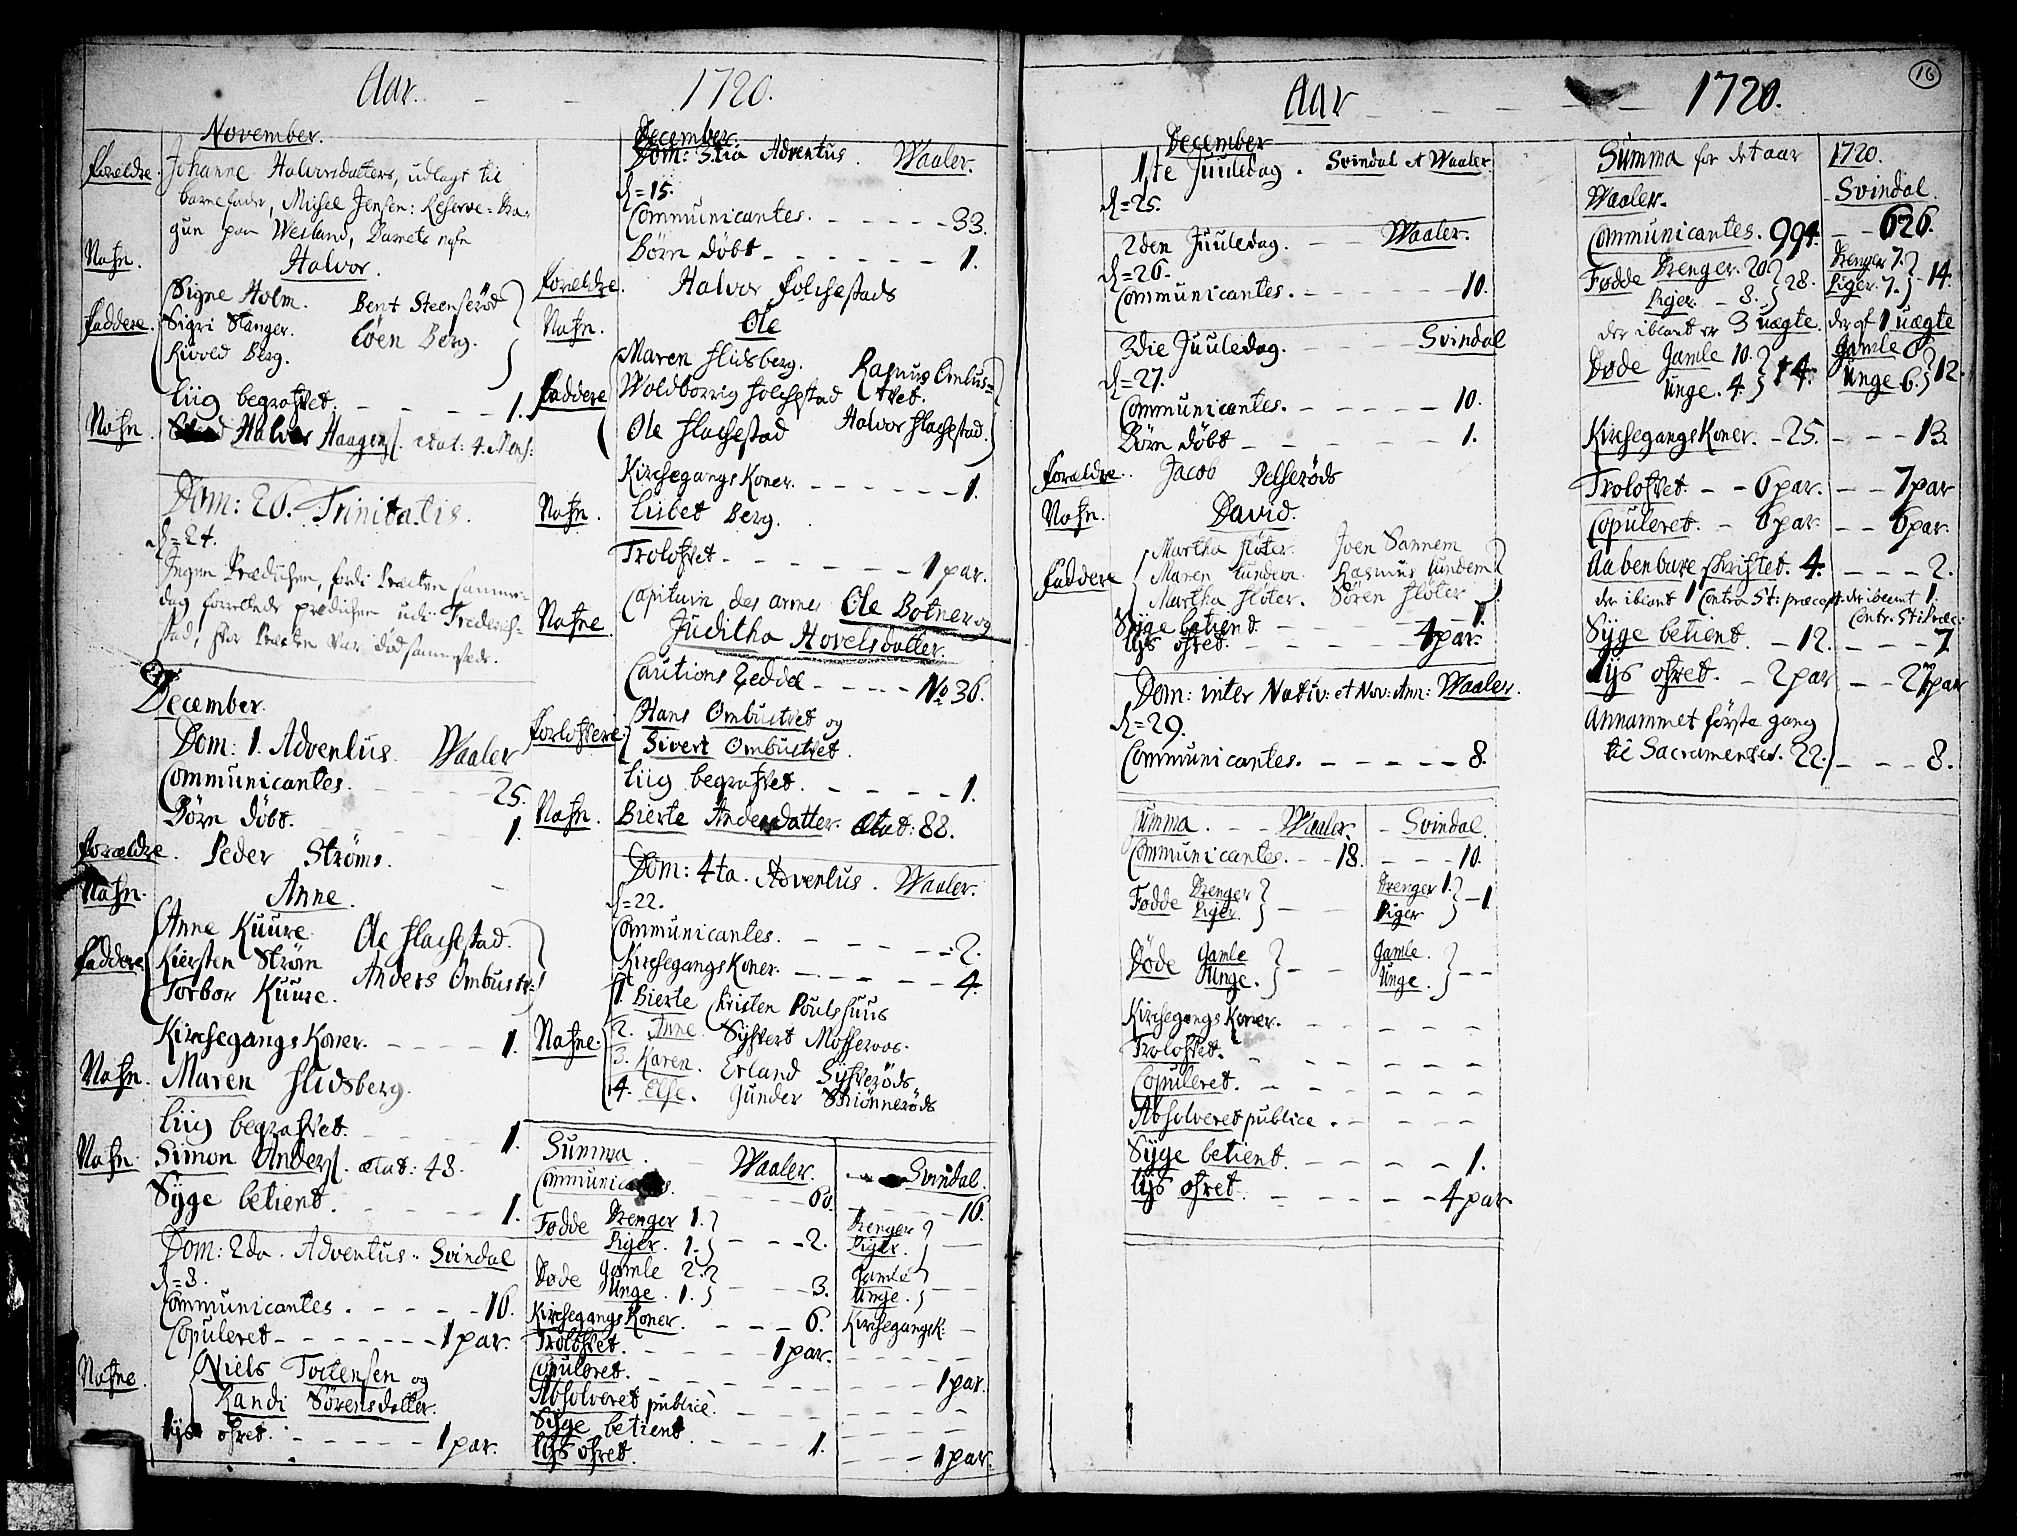 Aar. 1720.
November.
Forældre. Johanne Halvorsdatters, udlagt til
barnefader, Michel Jensen: Reserve=Dra-
gun paa Westland, Barnets nafn
Nafn. Halvor.
Faddere. Signe Holm. Bent Steenserød
Sigri Stanger. Cøen Berg.
Kivold Berg.
Liig begrafvet. 1.
Nafn. Halvor Haagens. ætat: 4. Mens:
Dom: 26. Trinitatis.
d=24.
Ingen Prædichen, fordi Præsten samme-
dag forrettede prædichen udi Friderich-
stad, hvor Præsten var død sammesteds.
December.
Dom: 1. Adventus. Waaler
Communicantes. 25.
Børn døbt. 1.
Forældre. Peder Strøms.
Nafn. Anne.
Anne Kuure. Ole Flachestad.
Faddere Kiersten Strøm Anders Ombustv:
Torbor Kuure.
Kirchegangs Koner. 1.
Nafn. Maren Flidsberg.
Liig begrafvet. 1.
Nafn. Simon Anders. ætat: 48.
Syge betient. 1.
Dom: 2da. Adventus. Svindal
d=8.
Communicantes. 16.
Copuleret 1 par.
Nafne. Niels Tostensen og
Randi Sørensdatter.
Lys ofret. 1 par.
December
Dom: 3tia Adventus. Waaler.
d=15.
Communicantes. 33.
Børn døbt 1.
Forældre. Halvor Folchestads
Nafn. Ole
Maren Flidsberg. Rasmus Ombus=
Faddere Woldborrig Folchestad tvet.
Ole Flachestad Halvor Flachestad.
Kirchegangs Koner. 1.
Nafn. Lisbet Berg.
Trolofvet 1 par.
Capitain des armes Ole Botner og
Nafne Juditha Hovelsdatter.
Cautions Zeddel No 36.
Forlofvere: Hans Ombustvet og
Sivert Ombustvet.
Liig begrafvet. 1.
Nafn. Bierte Andersdatter. Ætat: 88.
Dom: 4ta. Adventus. Waaler.
d=22.
Communicantes. 2.
Kirchegangs Koner. 4.
1. Bierte Christen Poulshuus
Nafne. 2. Anne Syffert Mosseroos.
3. Karen. Erland Syfverøds
4. Else. Gunder Skiønnerøds
Summa. Waaler. Svindal.
Communicantes. 60. 16.
Fødde Drenger 1. Piger. 1. 2. Drenger Piger.
Døde Gamle 2. Unge. 1. 3. Gamle Unge.
Kirchegangs Koner. 6. Kirchegangs K:
Trolofvet. 1 par.
Copuleret. 1 par.
Absolveret publicè.
Syge betient 1.
Lys ofret. 1 par.
Aar 1720.
16
December
1ste Juuledag. Svindal et Waaler
d=25.
2den Juuledag. Waaler.
d=26.
Communicantes. 10.
3die Juuledag. Svindal
d=27.
Communicantes. 10.
Børn døbt 1.
Forældre. Jacob Pelserøds
Nafn. David.
Martha Fløter. Joen Sannem
Faddere Maren Lundem. Rasmus Lundem
Martha Fløter. Søren Fløter
Syge betient. 1.
Lys ofret. 4 par.
Dom: inter Nativ: et Nov: Ann: Waaler.
d=29.
Communicantes. 8.
Summa. Waaler. Svindal.
Communicantes. 18. 10.
Fødde Drenger Piger. Drenger 1. Piger 1
Døde Gamle Unge. Gamle. Unge.
Kirchegangs Koner.
Trolofvet.
Copuleret.
Absolveret publice.
Syge betient. 1.
Lys ofret. 4 par
Summa for det aar 1720.
Waaler. Svindal.
Communicantes. 994. 626.
Fødde Drenger. 20. Piger 8. 28. Drenger 7. Piger. 7. 14.
der iblant er 3 uægte. der af 1 uægte
Døde Gamle 10. Unge. 4. 14. Gamle 6 Unge 6. 12.
Kirchegangs Koner. 25. 13.
Trolofvet. 6 par. 7 par
Copuleret. 6 par. 6 par.
Aabenbare skriftet. 4. 2.
der iblant 1 Contra St: præcept: der ibland 1.
Contr: Sti Præc:
Syge betient. 12. 7.
Lys ofret. 2 par
Annammet første gang
til Sacramentet. 22. 8.